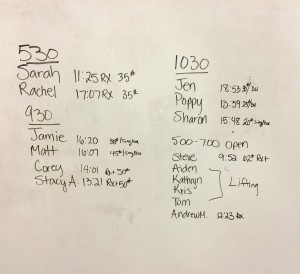 530
Sarah 11:25 RX 35#
Rachel 17:07 RX 35#
930
Jamie 16:20 35#
Matt 16:07 45#
Corey 14:01 RX+ 50#
Stacy A. 13:21 RX+50#
1030
Jen 18:53
Poppy
Sharon 15:48 20#
500-700 Open
Steve 9:52 62# RX+
Aiden
Kathryn
Kris
Tom
Lifting
Andrew M. 12:23 RX